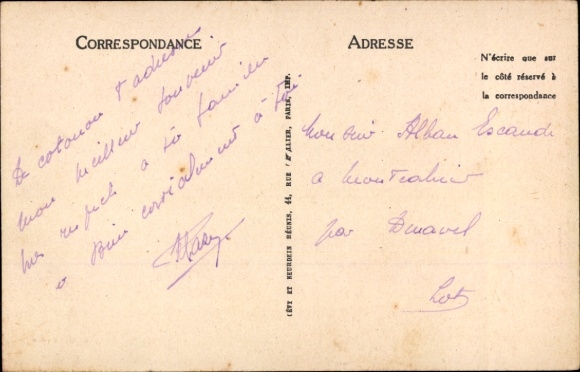 CORRESPONDANCE
De cotonou t'adresse
mon meilleur souvenir
mes respects a ta famille
Bien cordialement à toi
ADRESSE
N'écrire que sur
le côté réservé à
la correspondance
Monsieur Alban Escande
a Montcabrier
par Duravel
Lot
LÉVY ET NEURDEIN RÉUNIS, 44, RUE LETELLIER, PARIS, IMP.